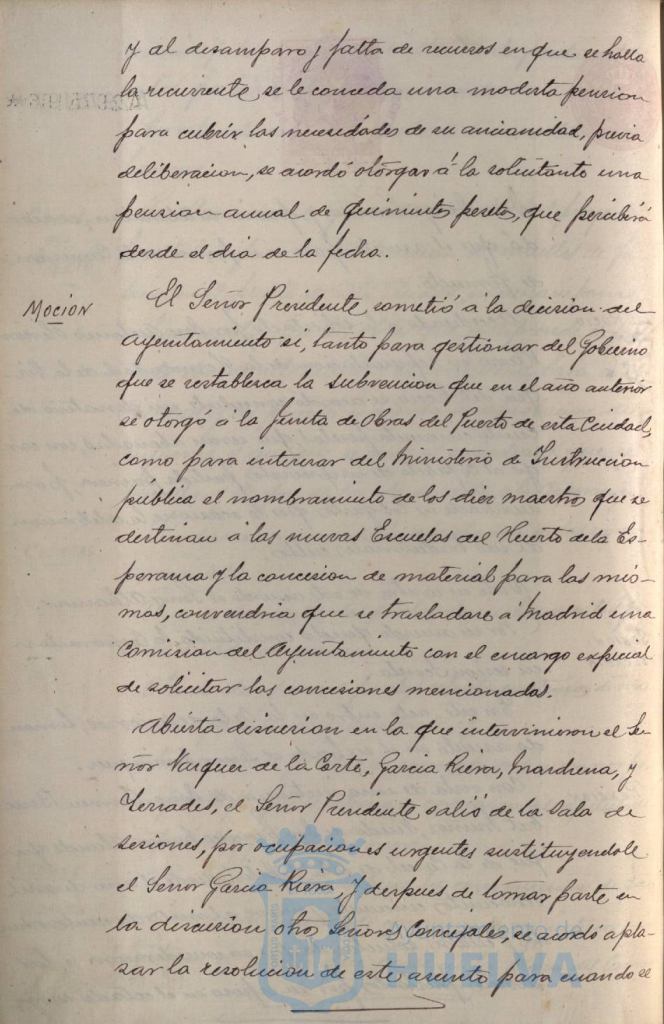 y al desamparo y falta de recursos en que se halla
la recurrente, se le conceda una modesta pension
para cubrir las necesidades de su ancianidad, previa
deliberacion, se acordó otorgar á la solicitante una
pension anual de quinientas pesetas, que percibirá
desde el dia de la fecha.
Moción
El Señor Presidente sometió á la decision del
Ayuntamiento si, tanto para gestionar del Gobierno
que se restablezca la subvencion que en el año anterior
se otorgó á la Junta de Obras del Puerto de esta Ciudad,
como para interesar del Ministerio de Instruccion
pública el nombramiento de los diez maestros que se
destinan á las nuevas Escuelas del Huerto de la Es-
peranza y la concesion de material para las mis-
mas, convendria que se trasladase á Madrid una
Comision del Ayuntamiento con el encargo especial
de solicitar las concesiones mencionadas.
Abierta discusion en la que intervinieron el Se-
ñor Vazquez de la Corte, Garcia Riera, Marchena, y
Terrades, el Señor Presidente salió de la Sala de
sesiones, por ocupaciones urgentes sustituyendole
el Señor Garcia Riera, y despues de tomar parte en
la discusion otros Señores Concejales, se acordó apla-
zar la resolucion de este asunto para cuando se
Ayuntamiento de
HUELVA